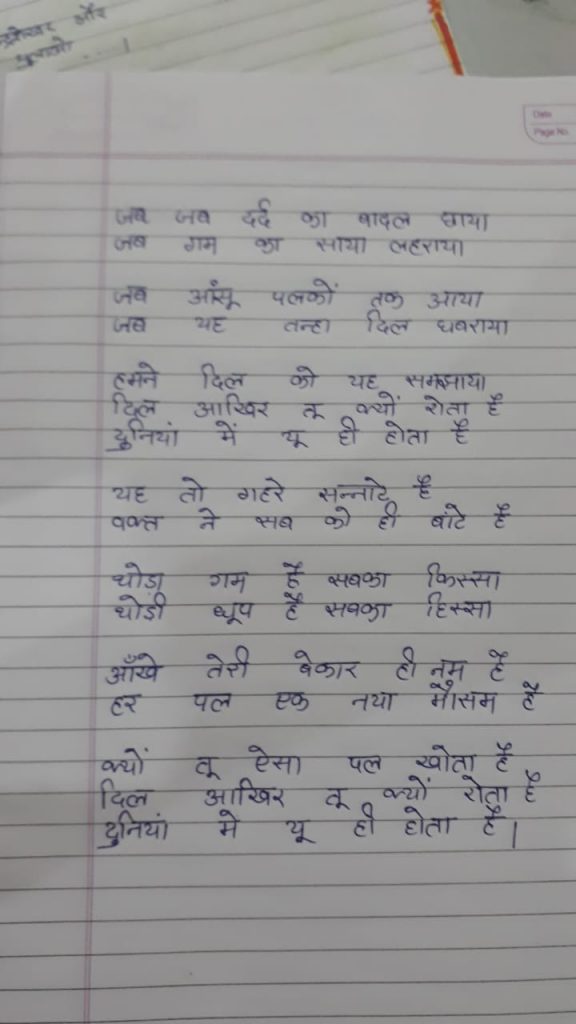 और
जब जब दर्द का बादल छाया
जब गम का साया लहराया
जब आँसू पलकों तक आया
जब यह तन्हा दिल घबराया
हमने दिल को यह समझाया
दिल आखिर तू क्यों रोता है
दुनियां में यू ही होता है
यह तो गहरे सन्नाटे है
वक्त ने सब को ही बांटे है
थोडा गम है सबका किस्सा
थोडी धूप है सबका हिस्सा
आँखे तेरी बेकार ही नम है
हर पल एक नया मौसम है
क्यों तू ऐसा पल खोता है
दिल आखिर तू क्यों रोता है
दुनियां मे यू ही होता है।
Date
Page No.